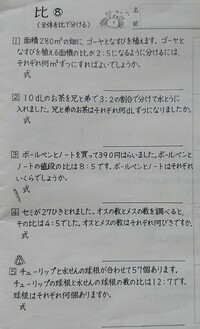 比⑧
(全体を比で分ける)
名
前
1 面積280m²の畑に、ゴーヤとなすびを植えます。ゴーヤと
なすびを植える面積の比が2:5になるように分けるには、
それぞれ何m²ずつにすればよいでしょうか。
式
2 10dLのお茶を兄と弟で3:2の割合で分けて水とうに
入れました。兄と弟のお茶はそれぞれ何dLずつになりましたか。
式
3 ボールペンとノートを買って390円はらいました。ボールペンと
ノートの値段の比は8:5です。ボールペンとノートはそれぞれ
いくらでしょうか。
式
4 セミが27ひきとれました。オスの数とメスの数を調べると、
その比は4:5でした。オスとメスの数はそれぞれ何びきですか。
式
5 チューリップと水せんの球根が合わせて57個あります。
チューリップの球根と水せんの球根の数の比は12:7です。
球根はそれぞれ何個ありますか。
式